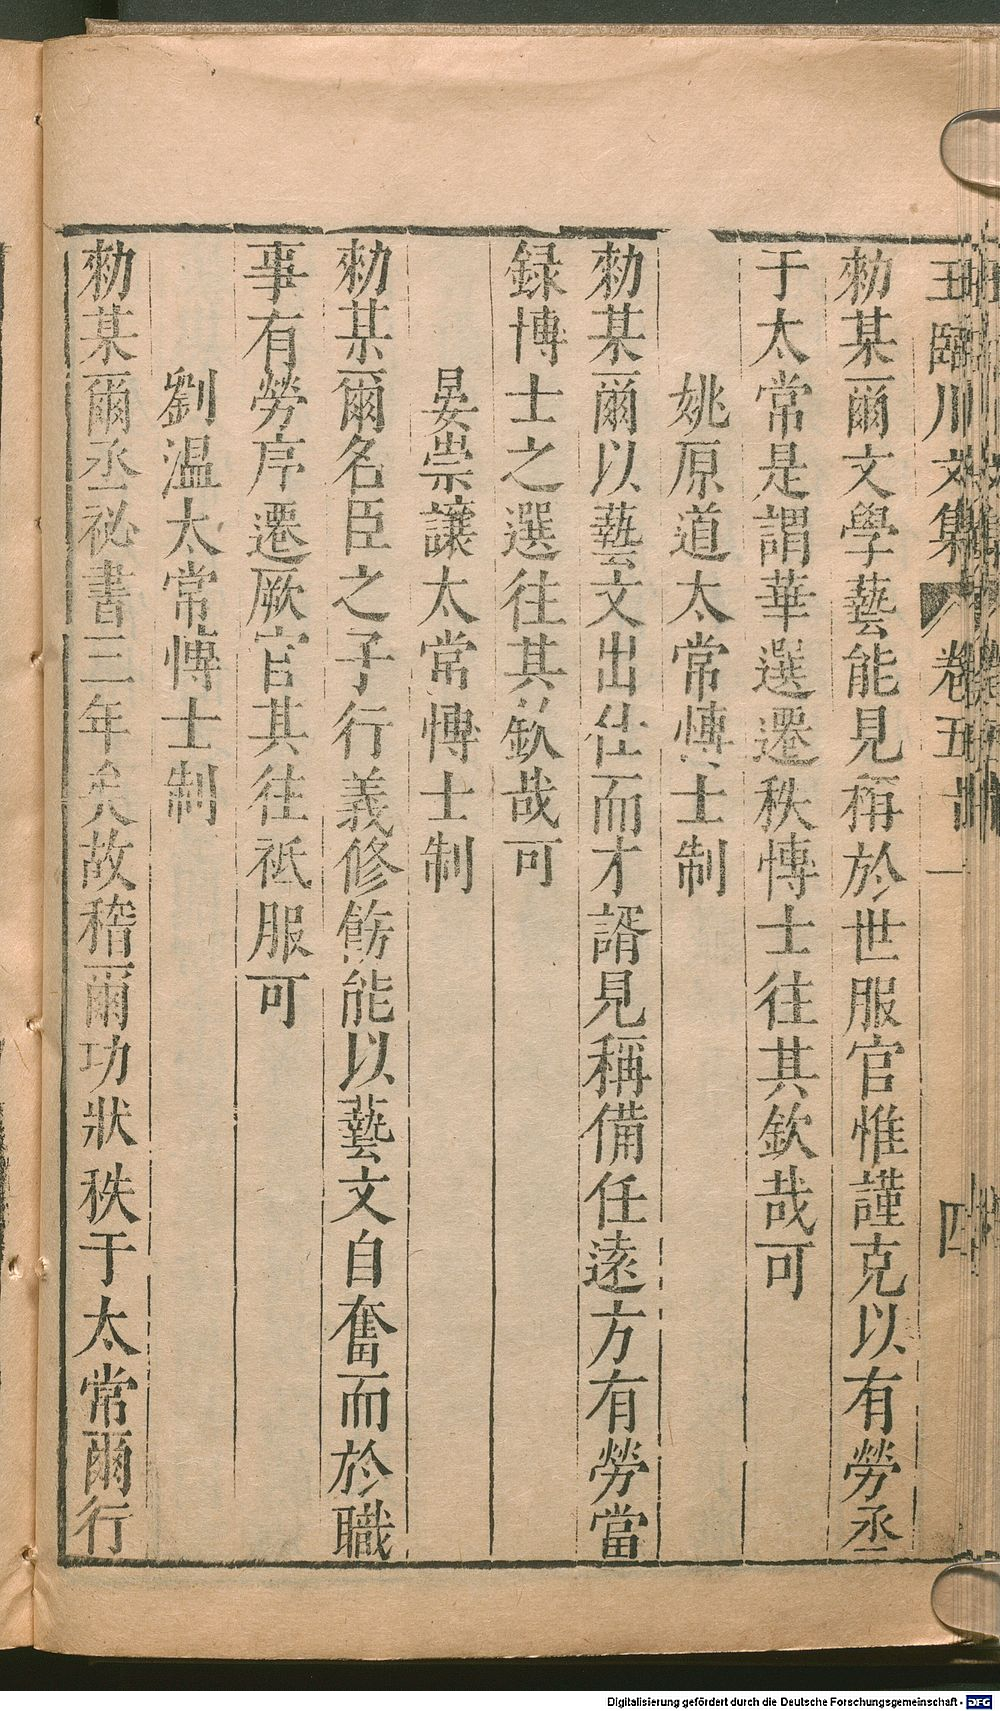 王臨川文集 卷五十一 四
勑某爾文學藝能見稱於世服官惟謹克以有勞丞
于太常是謂華選遷秩愽士往其欽哉可
姚原道太常愽士制
勑某爾以藝文出仕而才諝見稱備任遠方有勞當
録博士之選往其欽哉可
晏崇讓太常愽士制
勑某爾名臣之子行義修飭能以藝文自奮而於職
事有勞序遷厥官其往祗服可
劉溫太常愽士制
勑某爾丞祕書三年矣故稽爾功狀秩于太常爾行
Digitalisierung gefördert durch die Deutsche Forschungsgemeinschaft - DFG